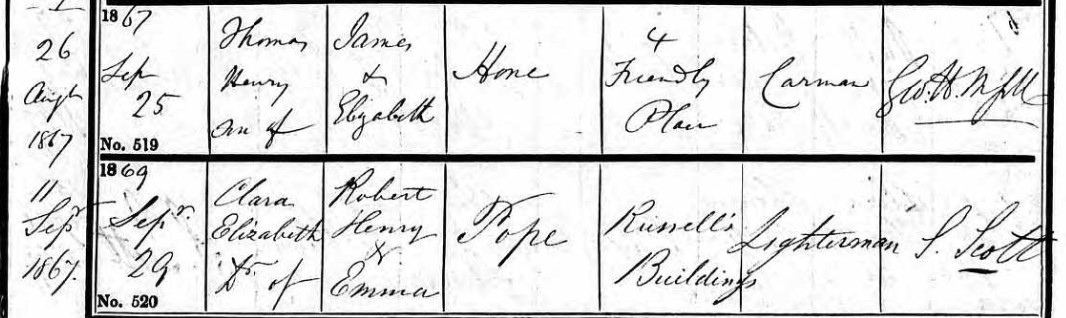 26
Augt
1867
1867
Sep
25
No. 519
Thomas
Henry
son of
James
&
Elizabeth
Hone
4
Friendly
Place
Carman
Geo. H.
11
Sepr
1867.
1869
Sepr.
29
No. 520
Clara
Elizabeth
Dr of
Robert
Henry
&
Emma
Pope
Russell's
Buildings
Lighterman
S. Scott